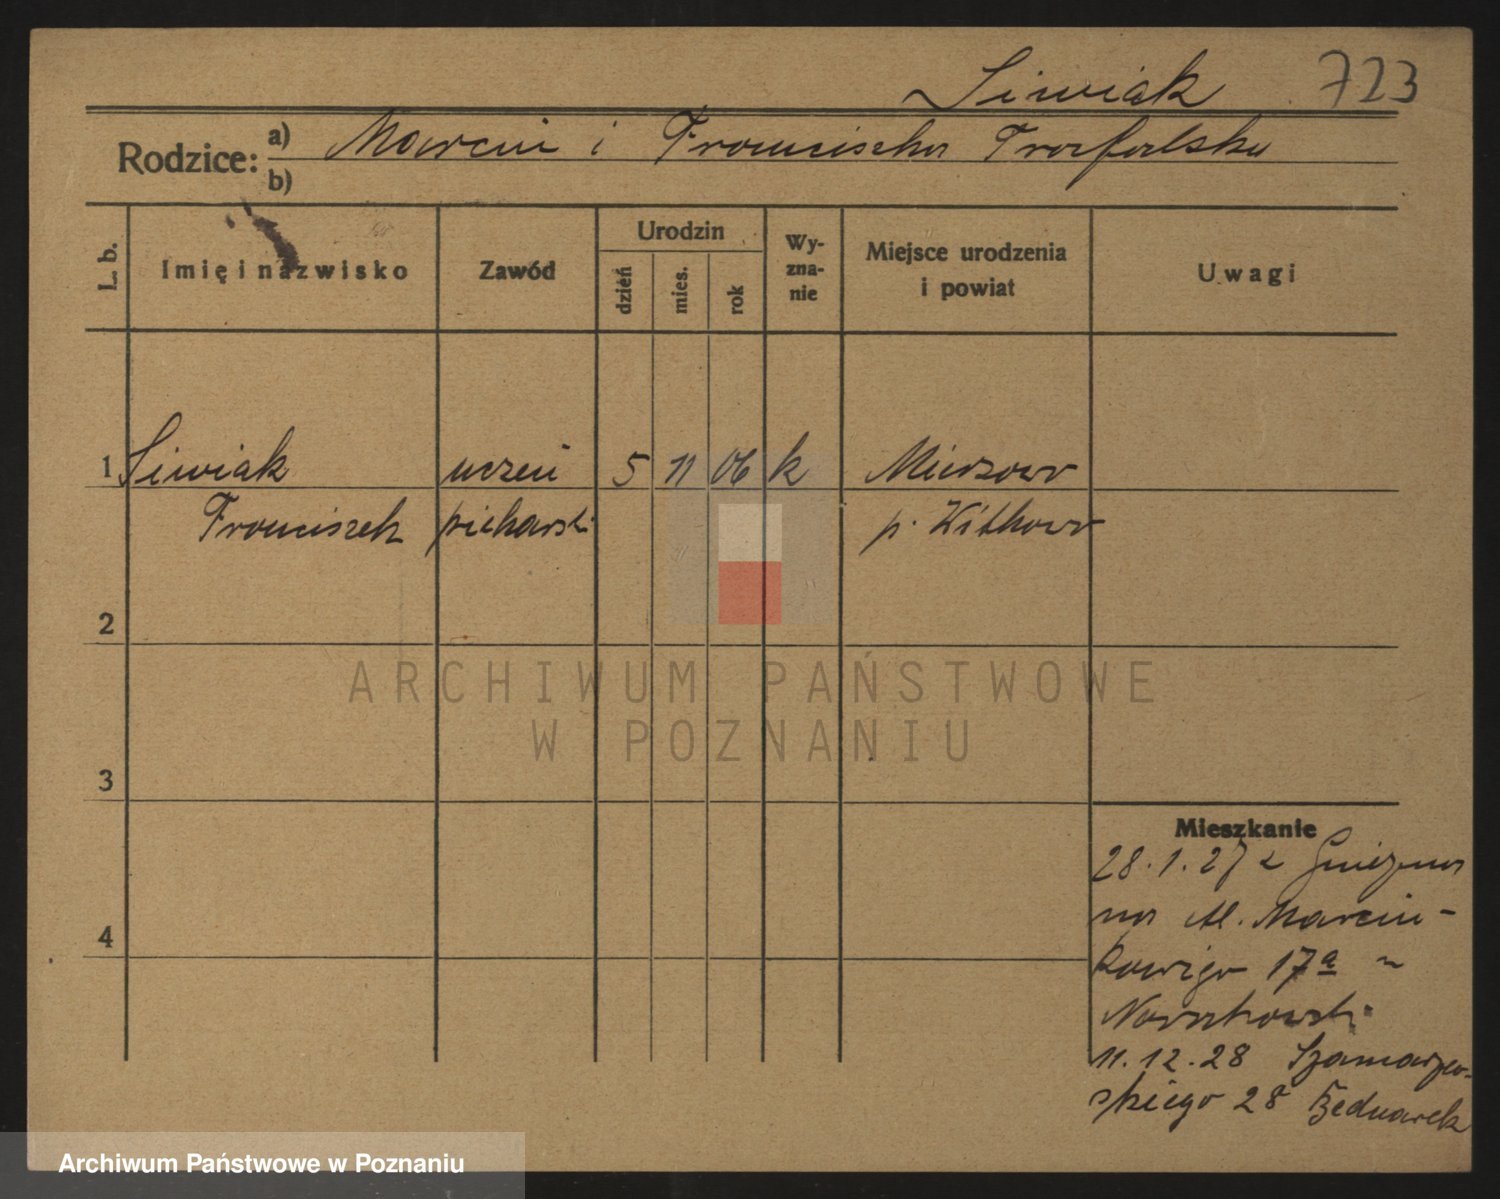 Siwiak 723
Rodzice: a) Marcin i Franciszka Trafalska
b)
L. b. Imię i nazwisko Zawód Urodzin dzień mies. rok Wy-zna-nie Miejsce urodzenia i powiat Uwagi
1 Siwiak uczeń 5 11 06 k Mierzewo
Franciszek piekarski p. Witkowo
2
ARCHIWUM PAŃSTWOWE
W POZNANIU
3
Mieszkanie
28.1.27 z Gniezna
na Al. Marcin-
kowsiego 17a
4
11.12.28 Szamarzew-
skiego 28 Bednarek
Archiwum Państwowe w Poznaniu